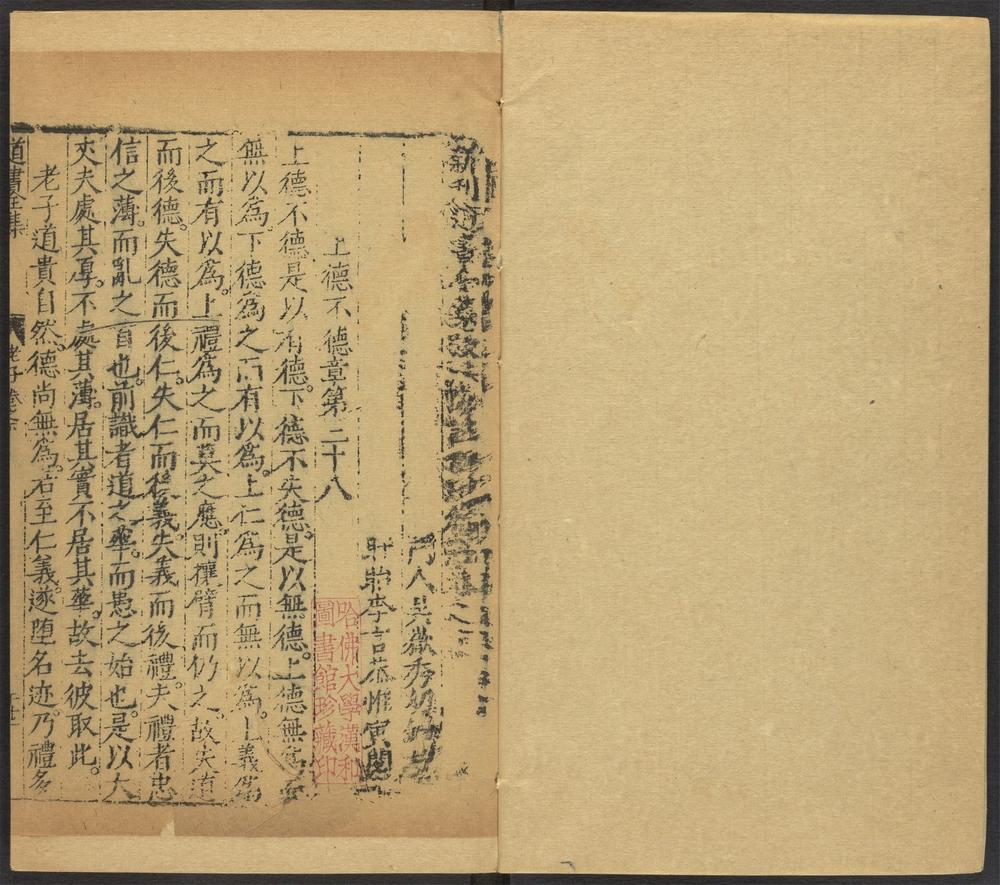 新刊道書全集
門人吳
盱眙李言恭惟寅閱
上德不德章第三十八
上德不德是以有德。下德不失德。是以無德。上德無爲而
無以爲。下德爲之而有以爲。上仁爲之而無以爲。上義爲
之而有以爲。上禮爲之而莫之應。則攘臂而仍之。故失道
而後德。失德而後仁。失仁而後義。失義而後禮。夫禮者忠
信之薄。而亂之首也。前識者道之華。而愚之始也。是以大
丈夫處其厚。不處其薄。居其實不居其華。故去彼取此。
老子道貴自然。德尚無爲。若至仁義。遂堕名迹。乃禮多
道書全集
老子
哈佛大學漢和
圖書館珍藏印